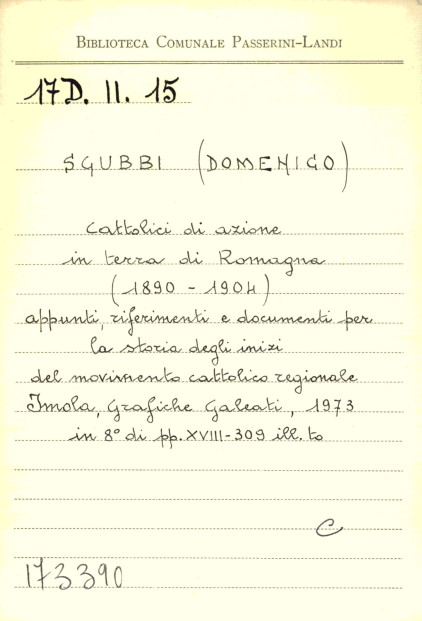 BIBLIOTECA COMUNALE PASSERINI-LANDI
17D. II. 15
SGUBBI (DOMENICO)
Cattolici di azione
in terra di Romagna
(1890 - 1904)
appunti, riferimenti e documenti per
la storia degli inizi
del movimento cattolico regionale
Imola, Grafiche Galeati, 1973
in 8° di pp. XVIII-309 ill.to
C
173390